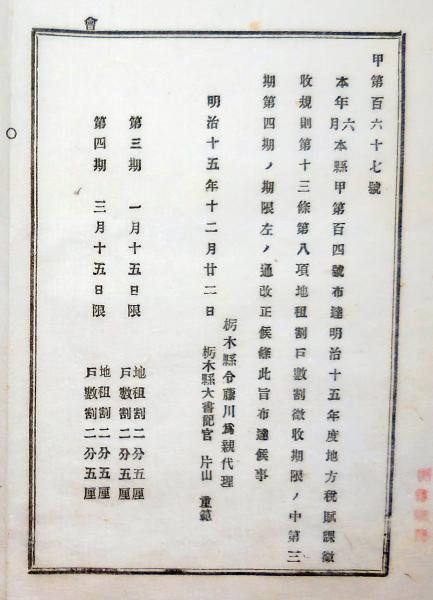 會
甲第百六十七號
本年六月本縣甲第百四號布達明治十五年度地方稅賦課徵
收規則第十三條第八項地租割戶數割徵收期限ノ中第三
期第四期ノ期限左ノ通改正候條此旨布達候事
栃木縣令藤川爲親代理
栃木縣大書記官 片山 重範
明治十五年十二月廿二日
第三期 一月十五日限 地租割二分五厘
戶數割二分五厘
第四期 三月十五日限 地租割二分五厘
戶數割二分五厘